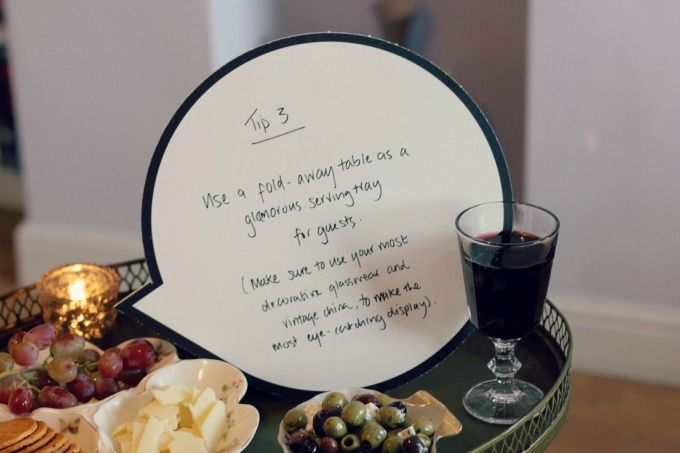 Tip 3
Use a fold-away table as a
glamorous serving tray
for guests.
(Make sure to use your most
decorative glasswear and
vintage china, to make the
most eye-catching display).